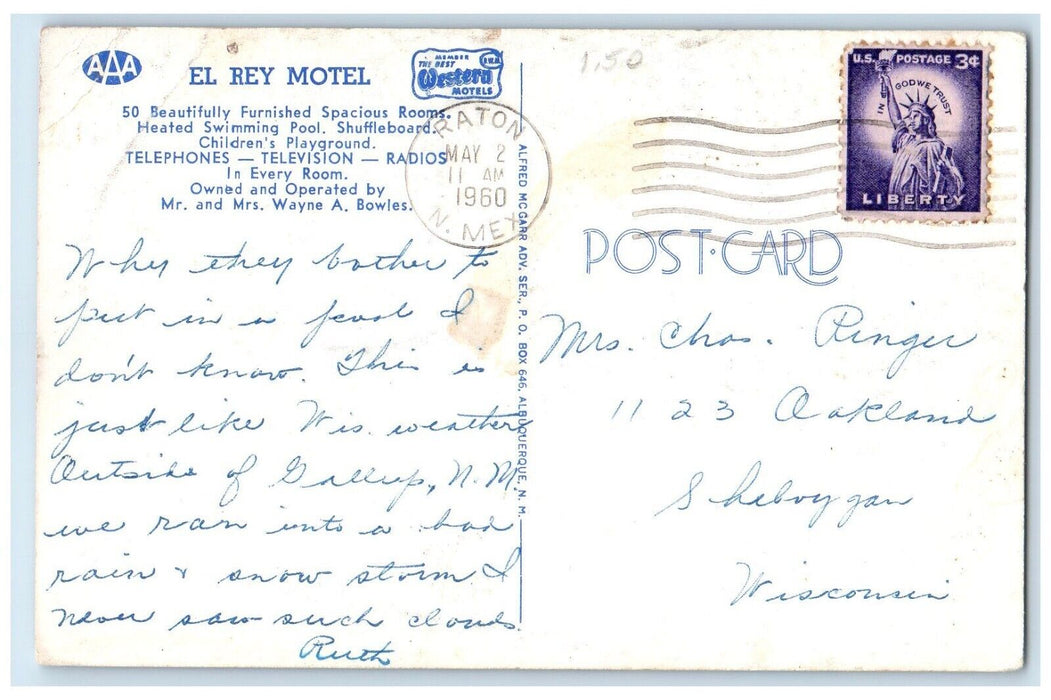 AAA
EL REY MOTEL
MEMBER
THE BEST
Western
MOTELS
50 Beautifully Furnished Spacious Rooms.
Heated Swimming Pool. Shuffleboard.
Children's Playground.
TELEPHONES — TELEVISION — RADIOS
In Every Room.
Owned and Operated by
Mr. and Mrs. Wayne A. Bowles.
Why they bother to
put in a pool I
don't know. This is
just like Wis. weather
Outside of Gallup, N. M.
we ran into a bad
rain & snow storm I
never saw such clouds
Ruth
RATON
MAY 2
11 AM
1960
N. MEX
ALFRED MCGARR ADV. SER., P. O. BOX 646, ALBUQUERQUE, N. M.
1.50
U.S. POSTAGE 3¢
IN GOD WE TRUST
LIBERTY
POST·CARD
Mrs. Chas. Ringer
1123 Oakland
Sheboygan
Wisconsin